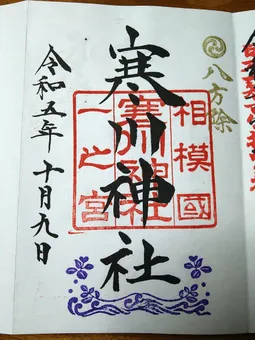 八方除
相模國
一之宮
寒川神社
寒川神社
令和五年十月九日